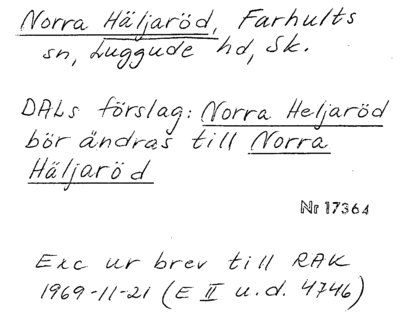 Norra Häljaröd, Farhults
sn, Luggude hd, Sk.
DALs förslag: Norra Heljaröd
bör ändras till Norra
Häljaröd
Nr 17364
Exc ur brev till RAK
1969-11-21 (E II u.d. 4746)